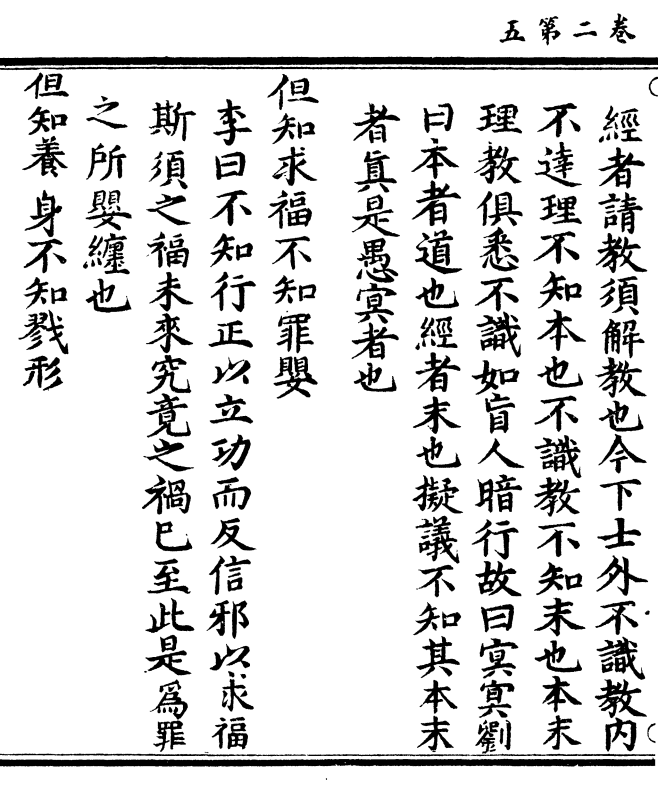 卷二第五
經者請教須解教也今下士外不識教內
不達理不知本也不識教不知末也本末
理教俱悉不識如盲人暗行故曰寞寞劉
曰本者道也經者末也擬議不知其本末
者真是愚寞者也
但知求福不知罪嬰
李曰不知行正以立功而反信邪以求福
斯須之福未來究竟之禍已至此是爲罪
之所嬰纏也
但知養身不知戮形